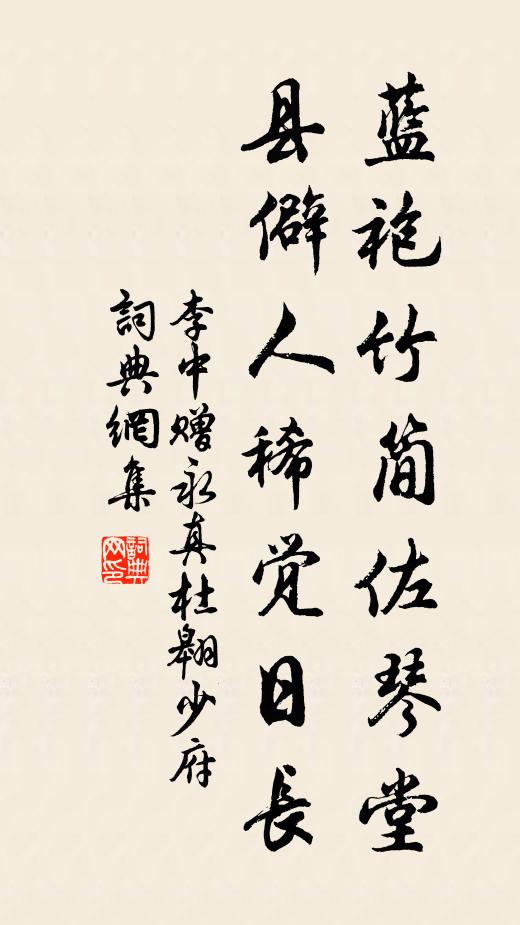 蓝袍竹简佐琴堂
县僻人稀觉日長
李中赠永真杜翱少府
詞典網集
詞典网印